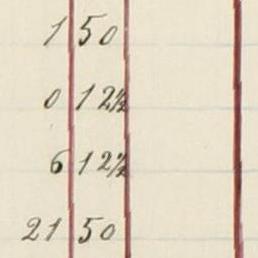 1 50
0 12½
6 12½
21 50